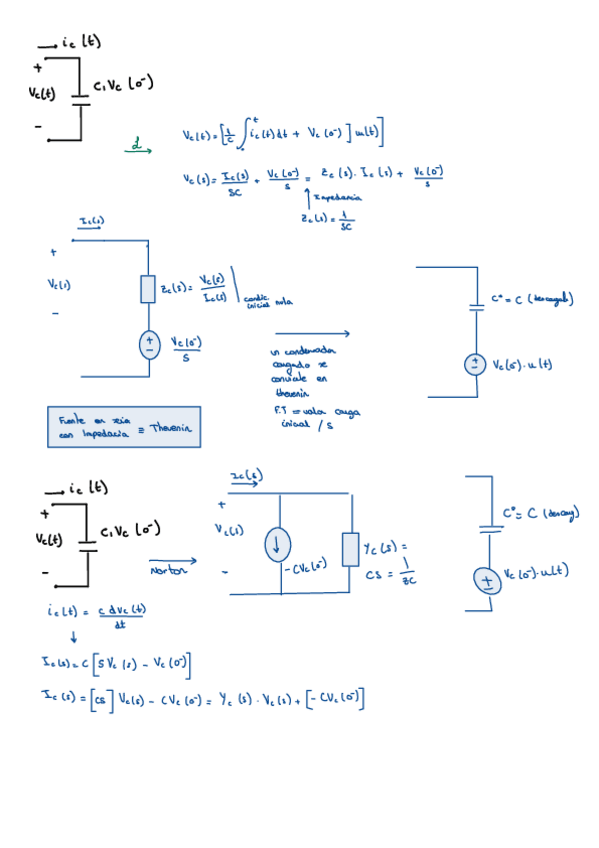 ic (t)
+
Vc(t)
C, Vc (0⁻)
-
L
Vc(t) = [1/C ∫^t ic(t)dt + Vc(0⁻) ] u(t)]
Vc(s) = Ic(s)/SC + Vc(0⁻)/s = Zc(s). Ic(s) + Vc(0⁻)/s
Impedancia
Zc(s) = 1/SC
Ic(s)
+
Vc(s)
-
Zc(s) = Vc(s)/Ic(s) | condic. inicial nula
+
-
Vc(0⁻)/S
un condensador
cargado se
convierte en
thevenin
F.T = valor carga
inicial / s
C* = C (descargado)
±
Vc(0⁻). u(t)
Fuente en serie
con Impedancia ≡ Thevenin
ic (t)
+
Vc(t)
C, Vc (0⁻)
-
Norton
Ic(s)
+
Vc(s)
-
-CVc(0⁻)
Yc(s) =
CS = 1/ZC
C* = C (descarg)
±
Vc(0⁻).u(t)
ic(t) = c dvc(t)/dt
Ic(s) = C [S Vc(s) - Vc(0⁻)]
Ic(s) = [cs] Vc(s) - CVc(0⁻) = Yc(s) . Vc(s) + [-CVc(0⁻)]